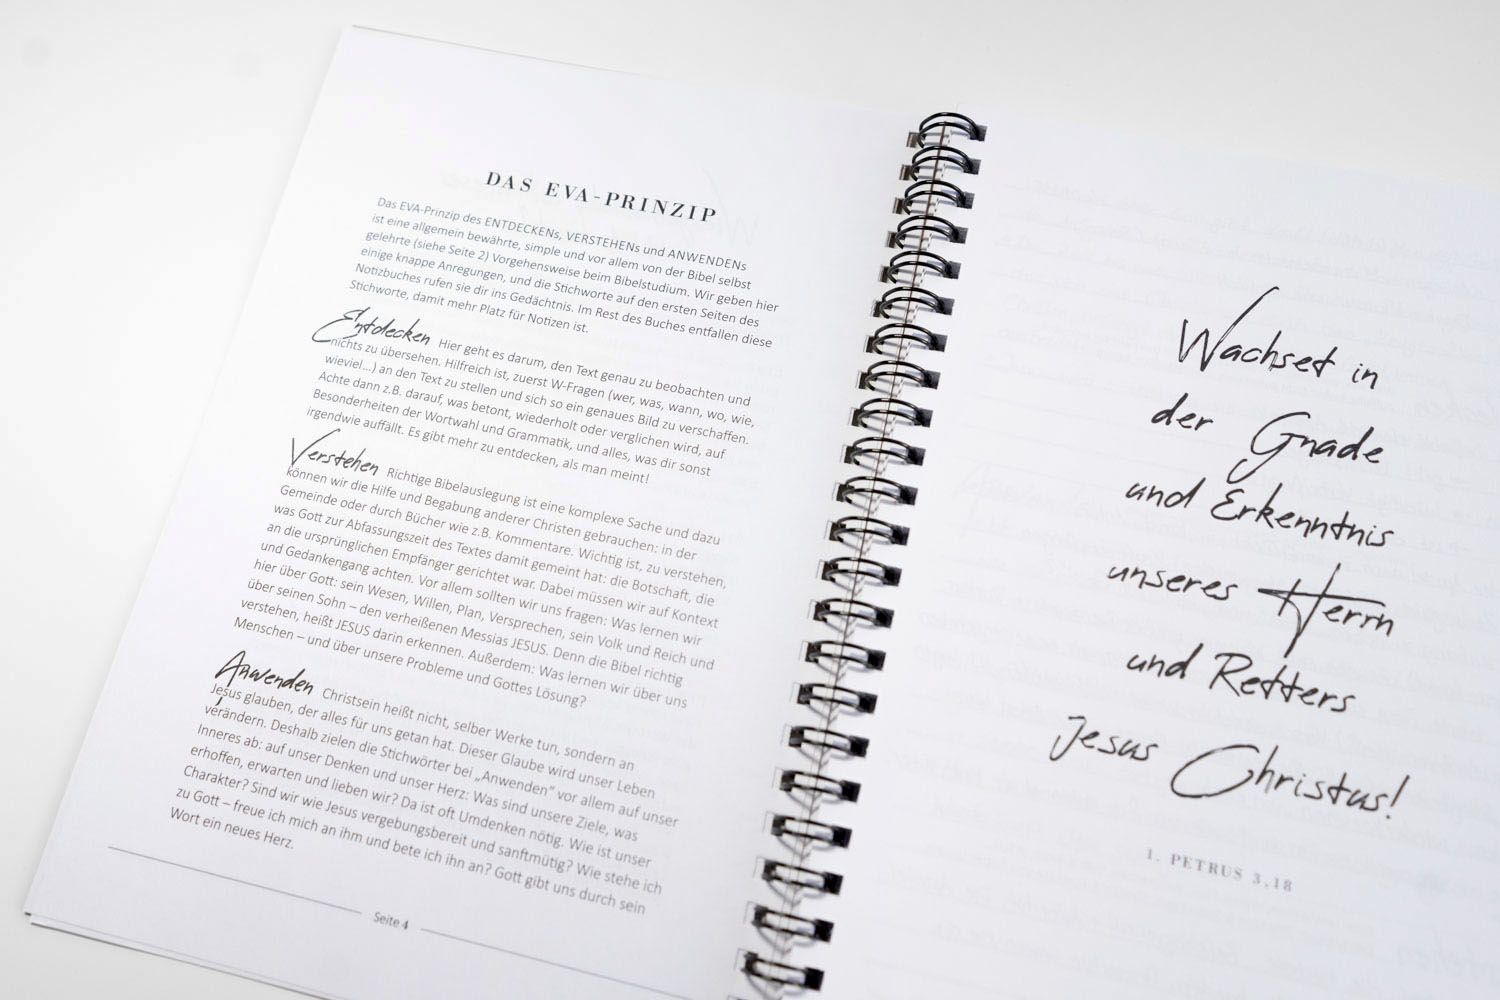 DAS EVA-PRINZIP
Das EVA-Prinzip des ENTDECKENs, VERSTEHENs und ANWENDENs
ist eine allgemein bewährte, simple und vor allem von der Bibel selbst
gelehrte (siehe Seite 2) Vorgehensweise beim Bibelstudium. Wir geben hier
einige knappe Anregungen, und die Stichworte auf den ersten Seiten des
Notizbuches rufen sie dir ins Gedächtnis. Im Rest des Buches entfallen diese
Stichworte, damit mehr Platz für Notizen ist.
Entdecken Hier geht es darum, den Text genau zu beobachten und
nichts zu übersehen. Hilfreich ist, zuerst W-Fragen (wer, was, wann, wo, wie,
wieviel...) an den Text zu stellen und sich so ein genaues Bild zu verschaffen.
Achte dann z.B. darauf, was betont, wiederholt oder verglichen wird, auf
Besonderheiten der Wortwahl und Grammatik, und alles, was dir sonst
irgendwie auffällt. Es gibt mehr zu entdecken, als man meint!
Verstehen Richtige Bibelauslegung ist eine komplexe Sache und dazu
können wir die Hilfe und Begabung anderer Christen gebrauchen: in der
Gemeinde oder durch Bücher wie z.B. Kommentare. Wichtig ist, zu verstehen,
was Gott zur Abfassungszeit des Textes damit gemeint hat: die Botschaft, die
an die ursprünglichen Empfänger gerichtet war. Dabei müssen wir auf Kontext
und Gedankengang achten. Vor allem sollten wir uns fragen: Was lernen wir
hier über Gott: sein Wesen, Willen, Plan, Versprechen, sein Volk und Reich und
über seinen Sohn – den verheißenen Messias JESUS. Denn die Bibel richtig
verstehen, heißt JESUS darin erkennen. Außerdem: Was lernen wir über uns
Menschen – und über unsere Probleme und Gottes Lösung?
Anwenden Christsein heißt nicht, selber Werke tun, sondern an
Jesus glauben, der alles für uns getan hat. Dieser Glaube wird unser Leben
verändern. Deshalb zielen die Stichwörter bei „Anwenden“ vor allem auf unser
Inneres ab: auf unser Denken und unser Herz: Was sind unsere Ziele, was
erhoffen, erwarten und lieben wir? Da ist oft Umdenken nötig. Wie ist unser
Charakter? Sind wir wie Jesus vergebungsbereit und sanftmütig? Wie stehe ich
zu Gott – freue ich mich an ihm und bete ich ihn an? Gott gibt uns durch sein
Wort ein neues Herz.
Seite 4
Wachset in
der Gnade
und Erkenntnis
unseres Herrn
und Retters
Jesus Christus!
1. PETRUS 3,18